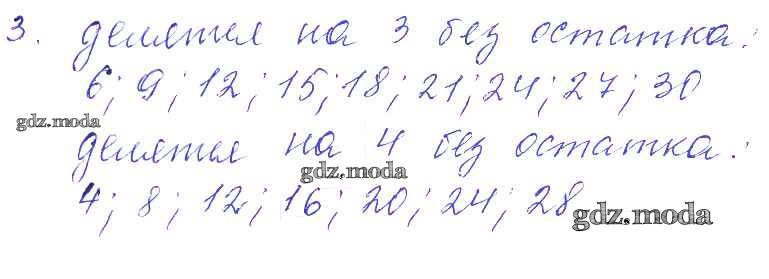 3. делятся на 3 без остатка:
6; 9; 12; 15; 18; 21; 24; 27; 30
gdz.moda
делятся на 4 без остатка:
gdz.moda
4; 8; 12; 16; 20; 24; 28
gdz.moda